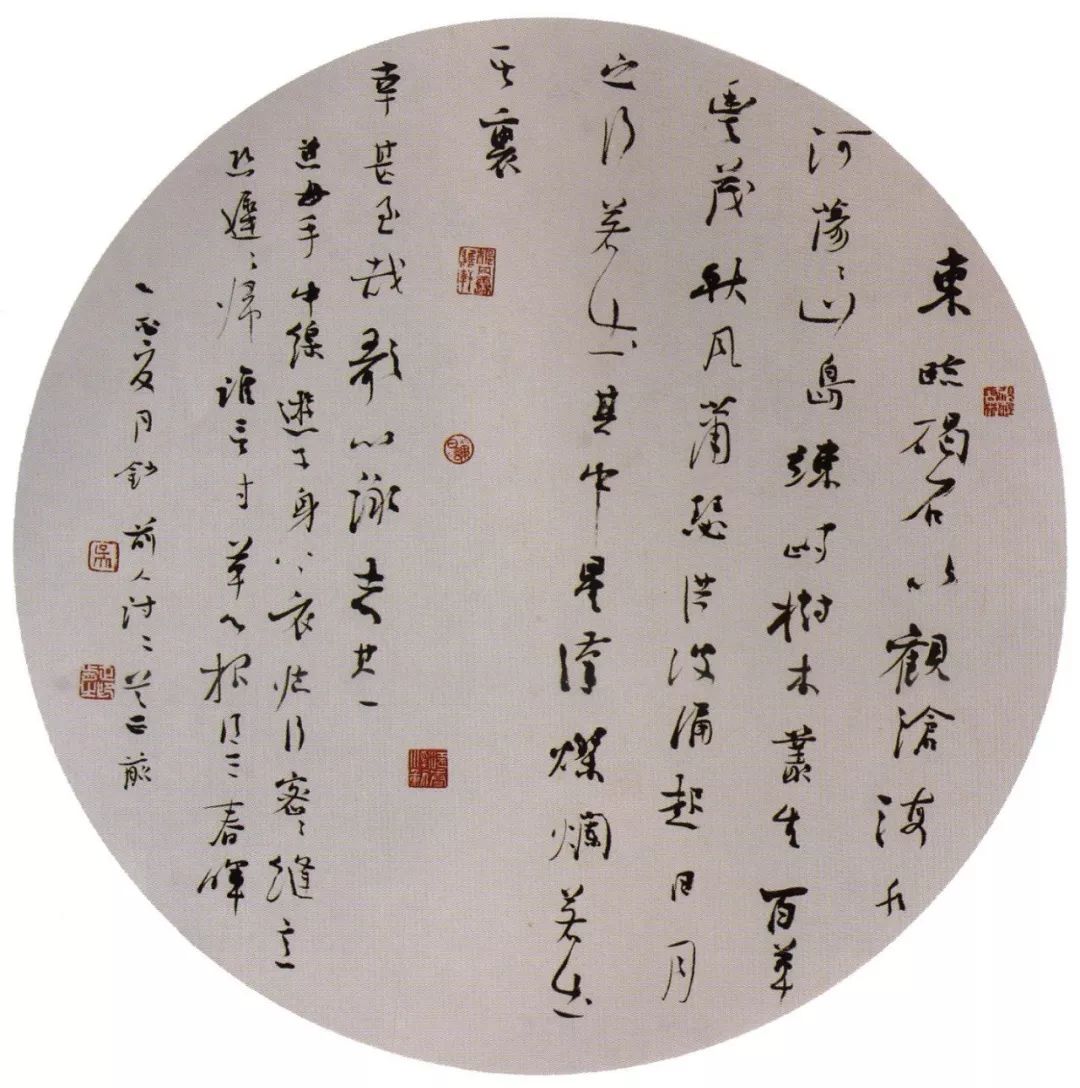 東臨碣石以觀滄海水
河蕩〻山島竦峙樹木叢生百草
豐茂秋風蕭瑟洪波涌起日月
之行若出其中星漢燦爛若出
其裏
幸甚至哉歌以詠志其一
慈母手中線遊子身上衣臨行密〻縫意
恐遲〻歸誰言寸草心報得三春暉
夏月鈔前人詩二首
吳